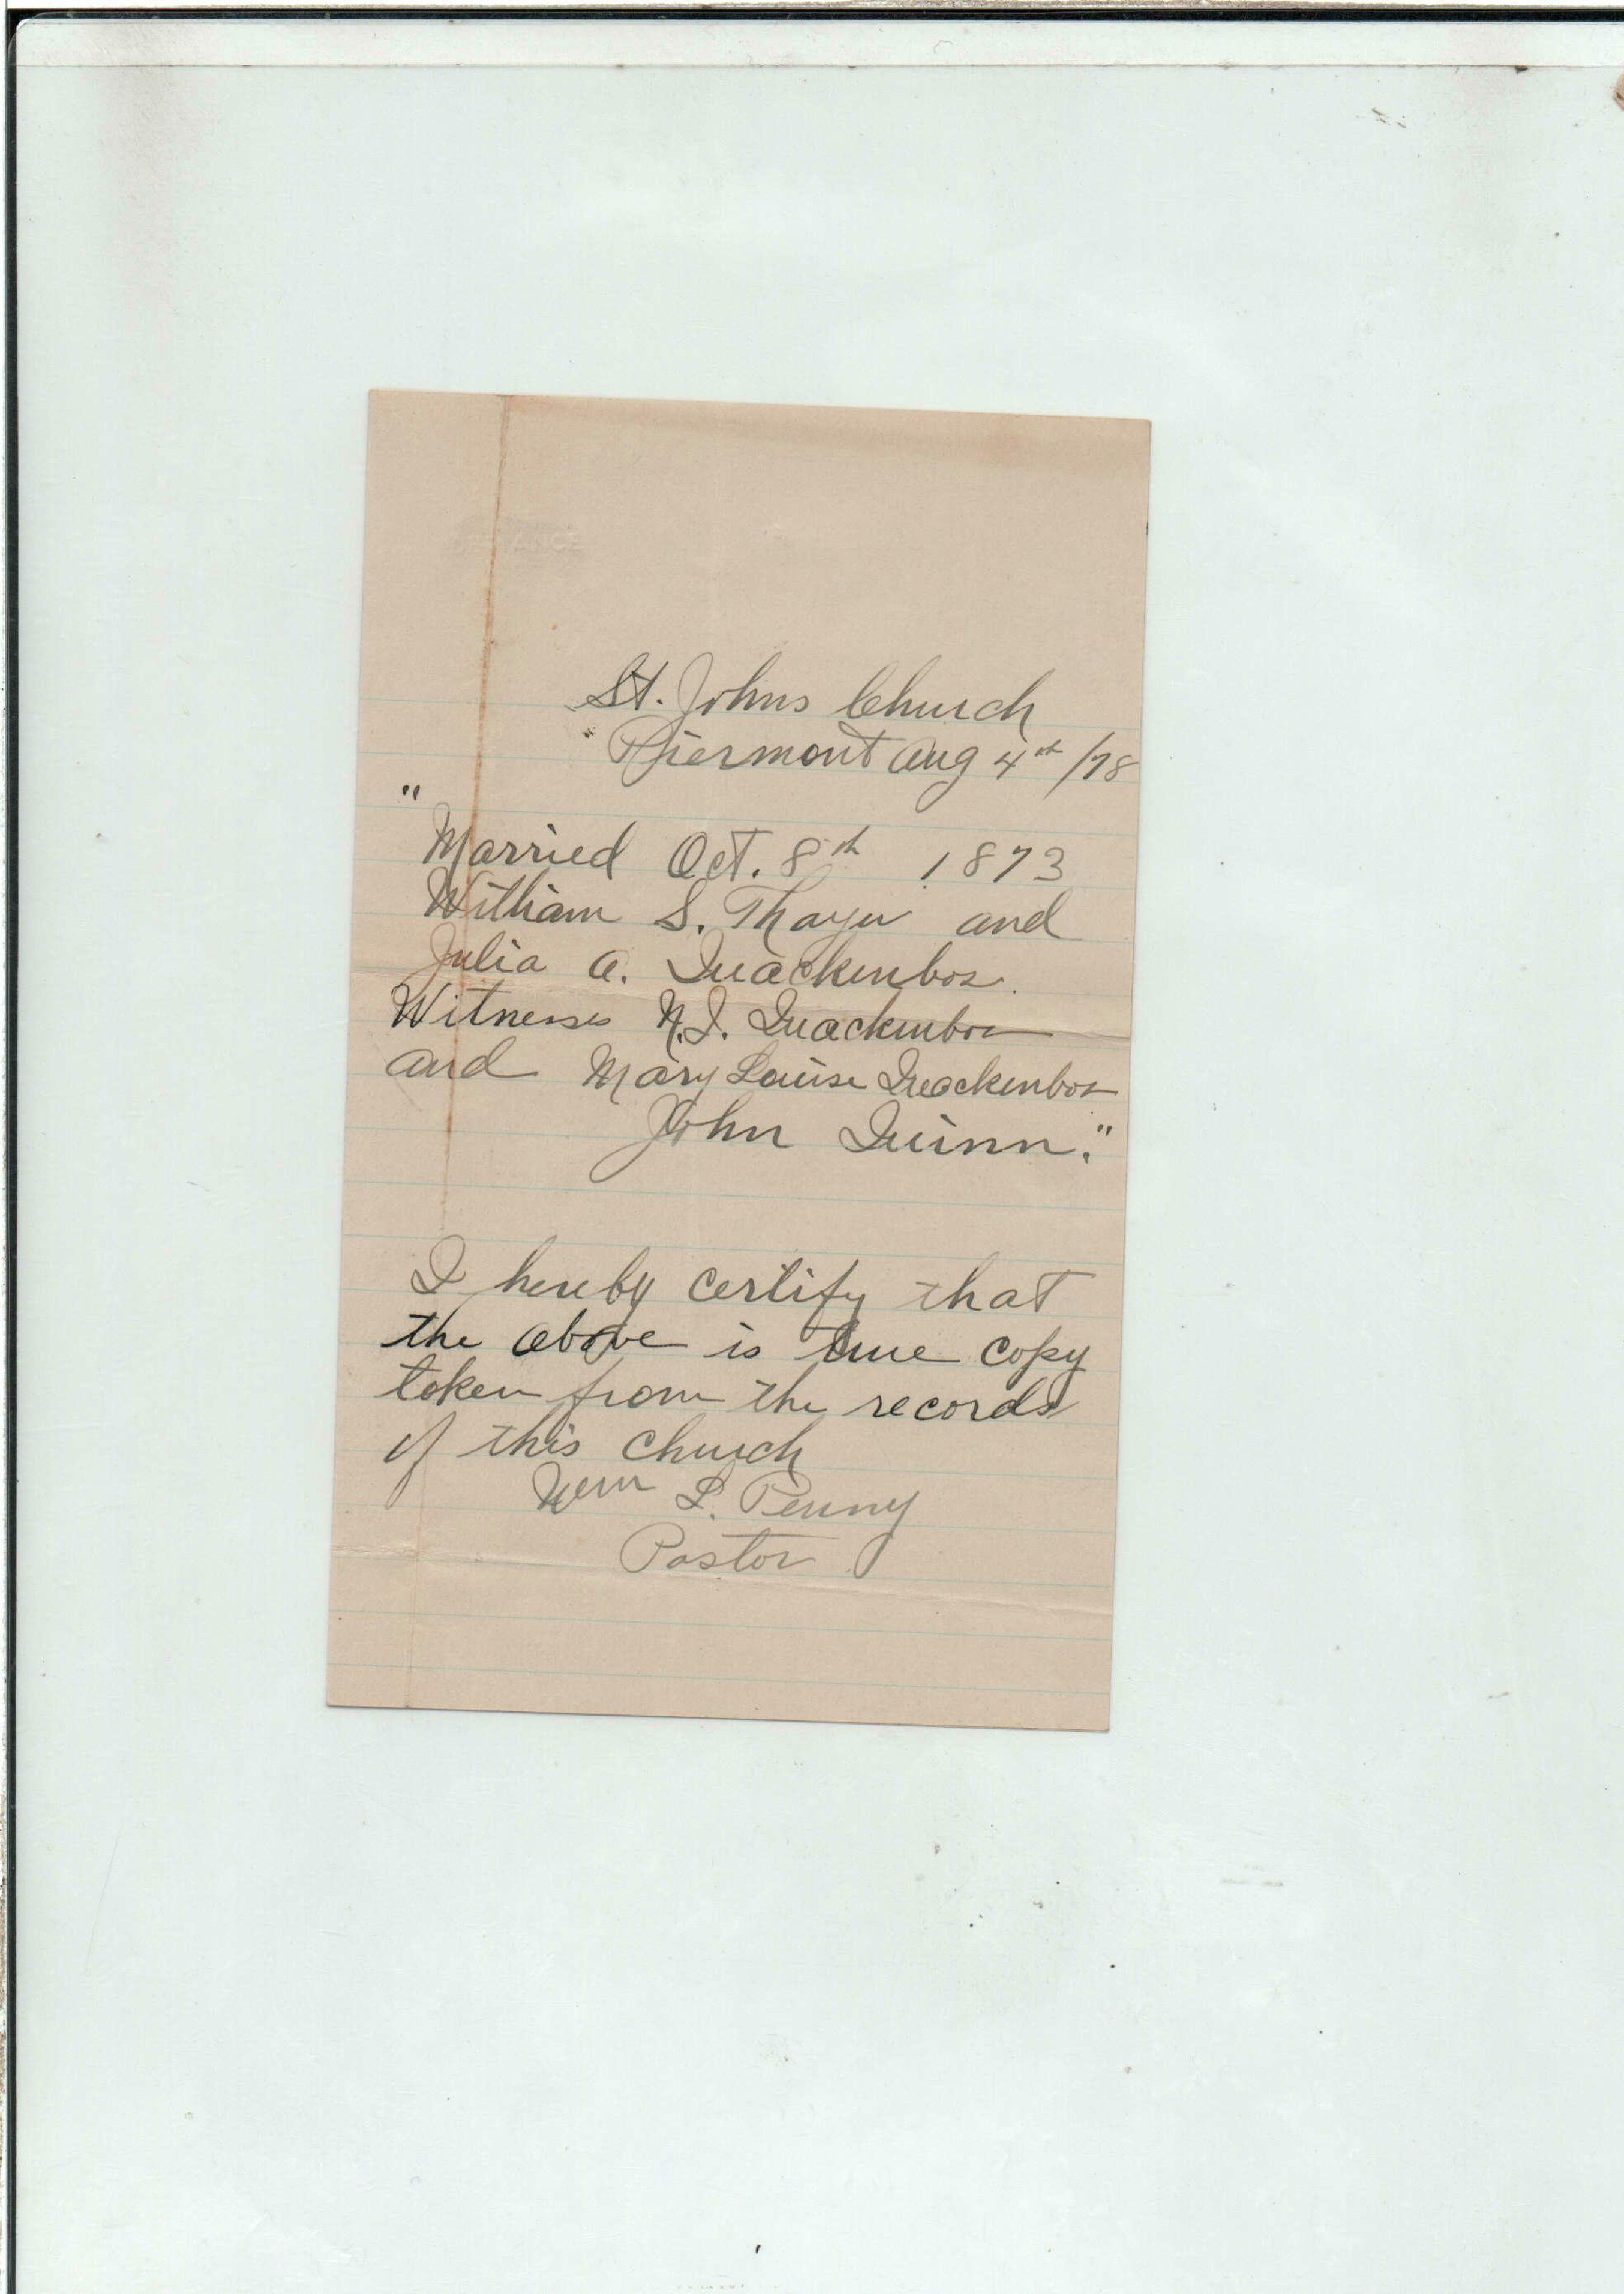 St. Johns Church
Piermont Aug 4th /98
"
Married Oct. 8th 1873
William S. Thayer and
Julia A. Quackenbos.
Witnesses N.I. Quackenbos
and Mary Louise Quackenbos
John Quinn."
I hereby certify that
the above is true copy
taken from the records
of this church
Wm L. Penny
Pastor